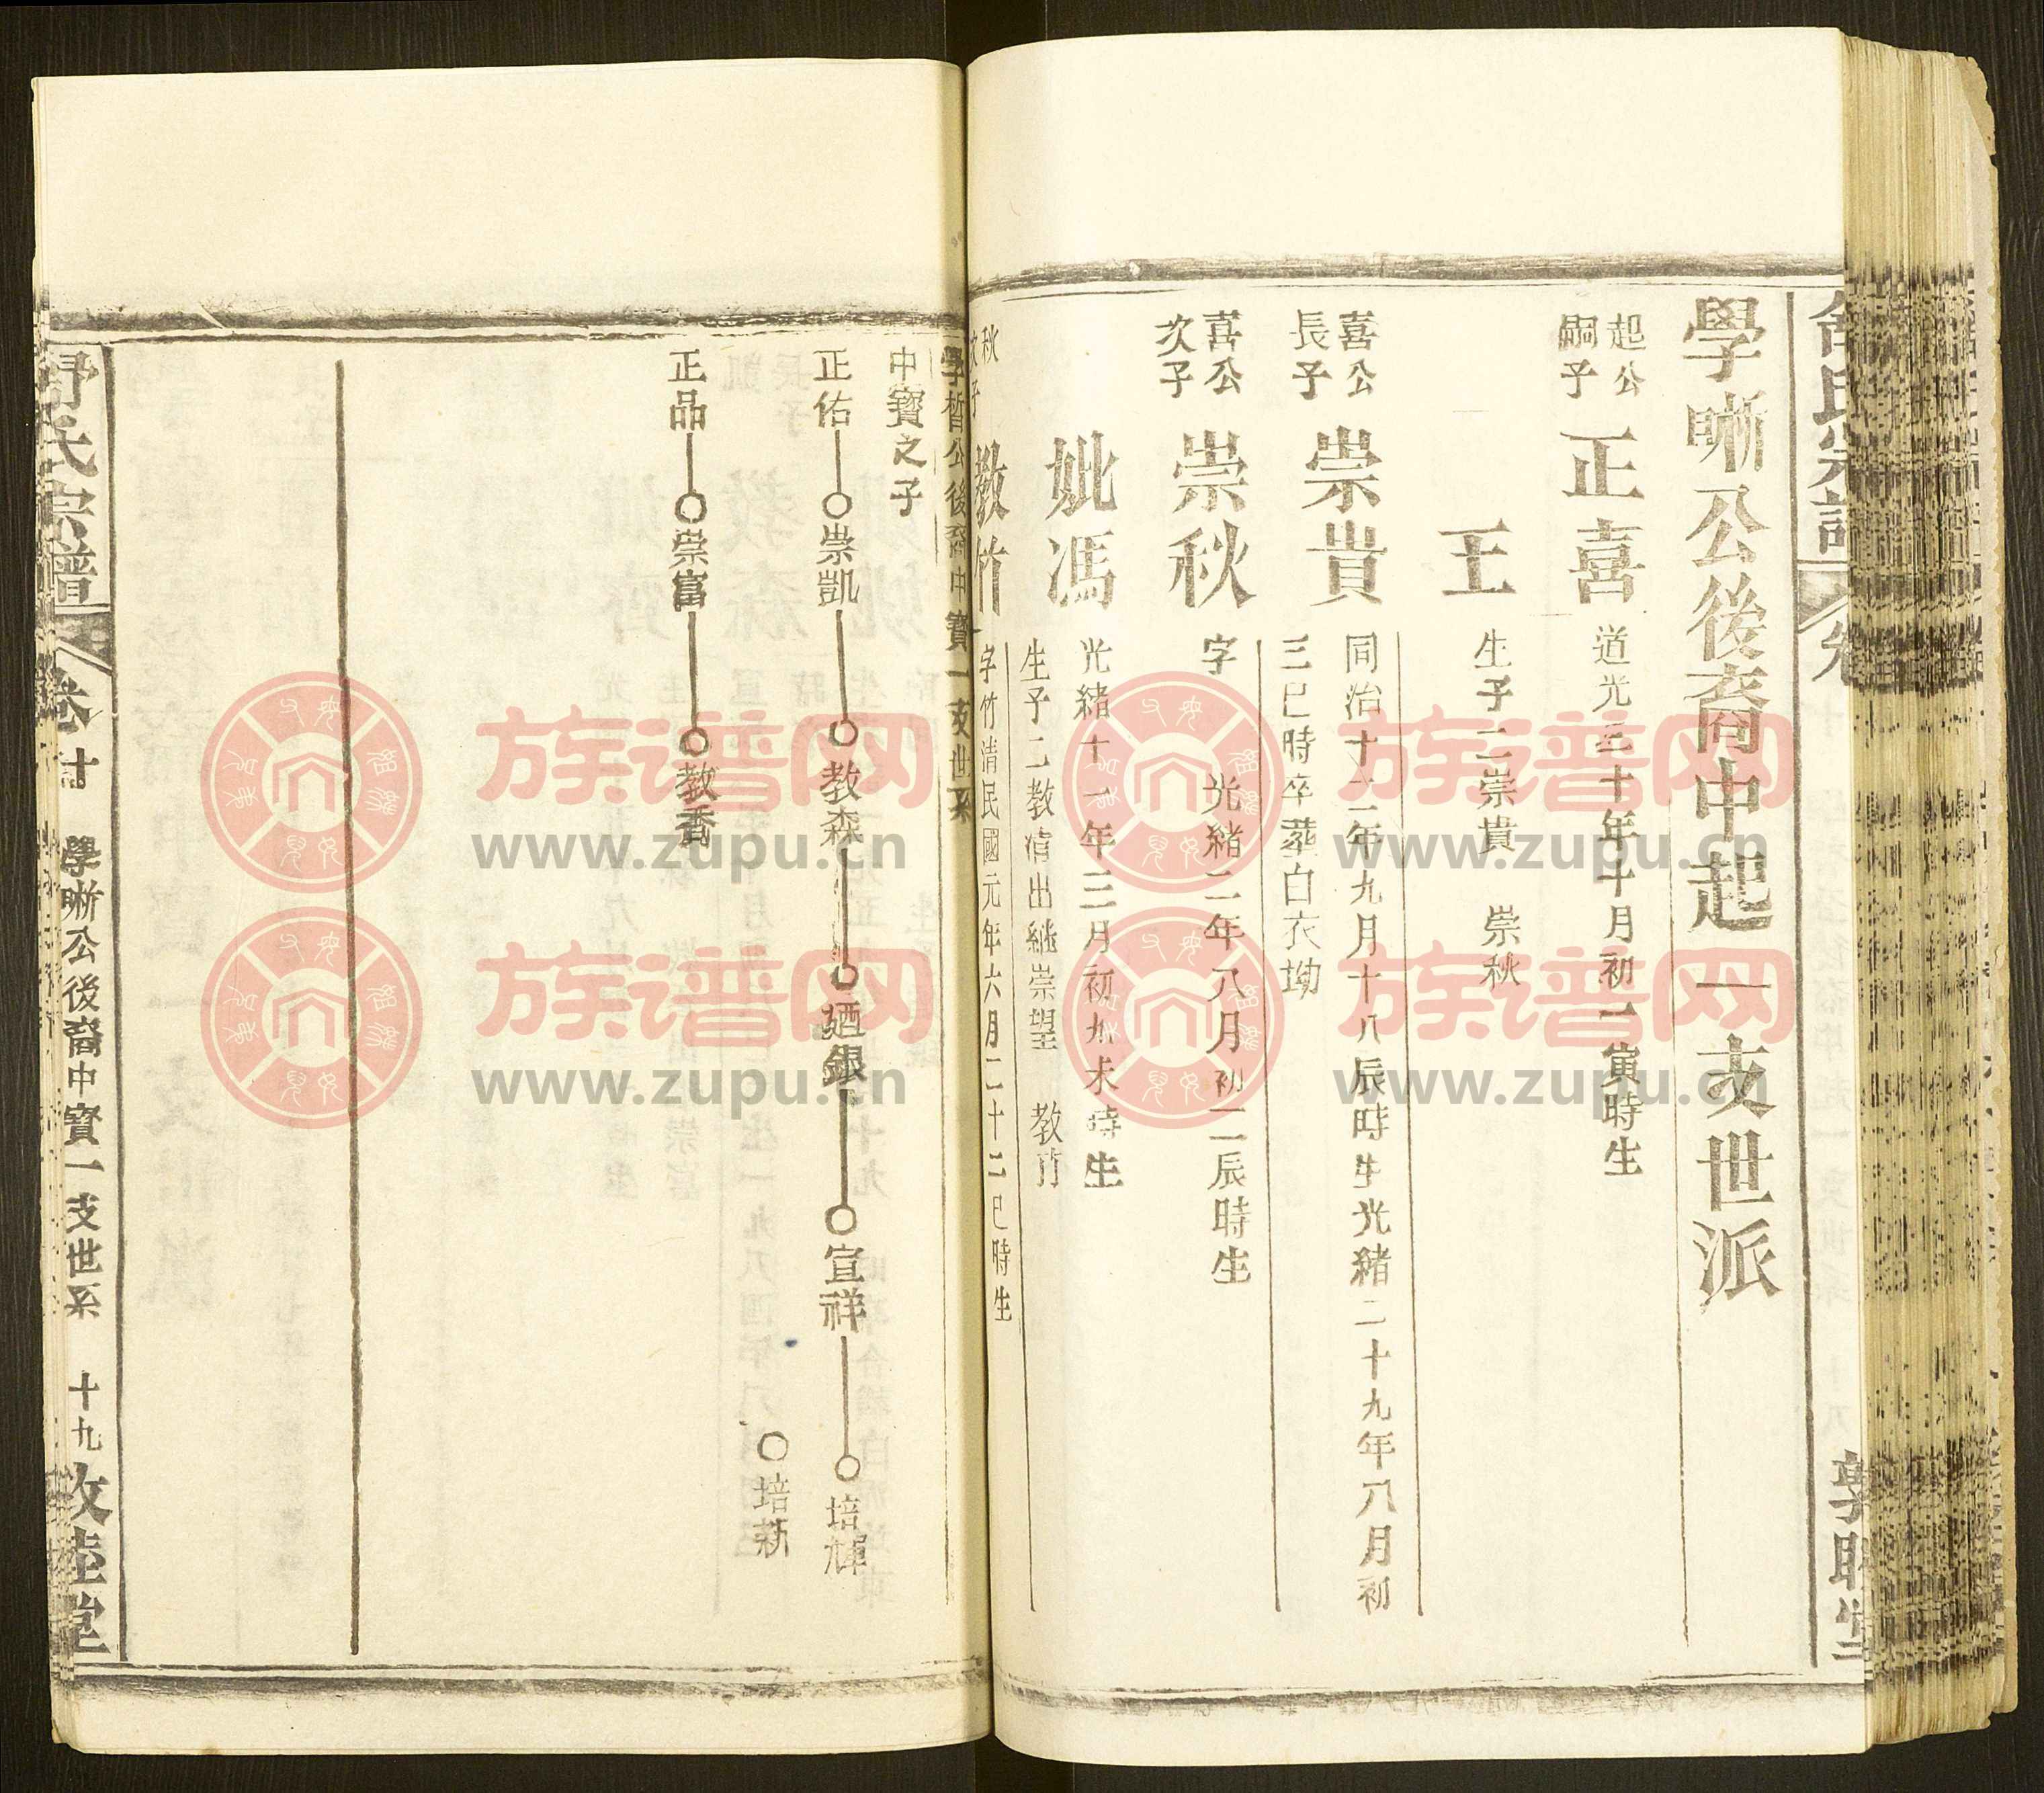 學晰公後裔中起一支世派
起公
嗣子
正喜
道光三十年十月初一寅時生
王
生子二崇貴 崇秋
喜公
長子
崇貴
同治十二年九月十八辰時生光緒二十九年八月初
三巳時卒葬白衣坳
喜公
次子
崇秋
字 光緒二年八月初二辰時生
妣馮
光緒十一年三月初九未時生
生子二教清出繼崇望 教竹
秋
次子
教竹
字竹清民國元年六月二十二巳時生
學晳公後裔中寶一支世系
中寶之子
正佑 崇凱 教森 廼銀 宣祥 培輝
培新
正品 崇富 教香
舒氏宗譜 卷廿 學晰公後裔中寳一支世系 十九 敦睦堂
族谱网
www.zupu.cn
族谱网
www.zupu.cn
族谱网
www.zupu.cn
族谱网
www.zupu.cn